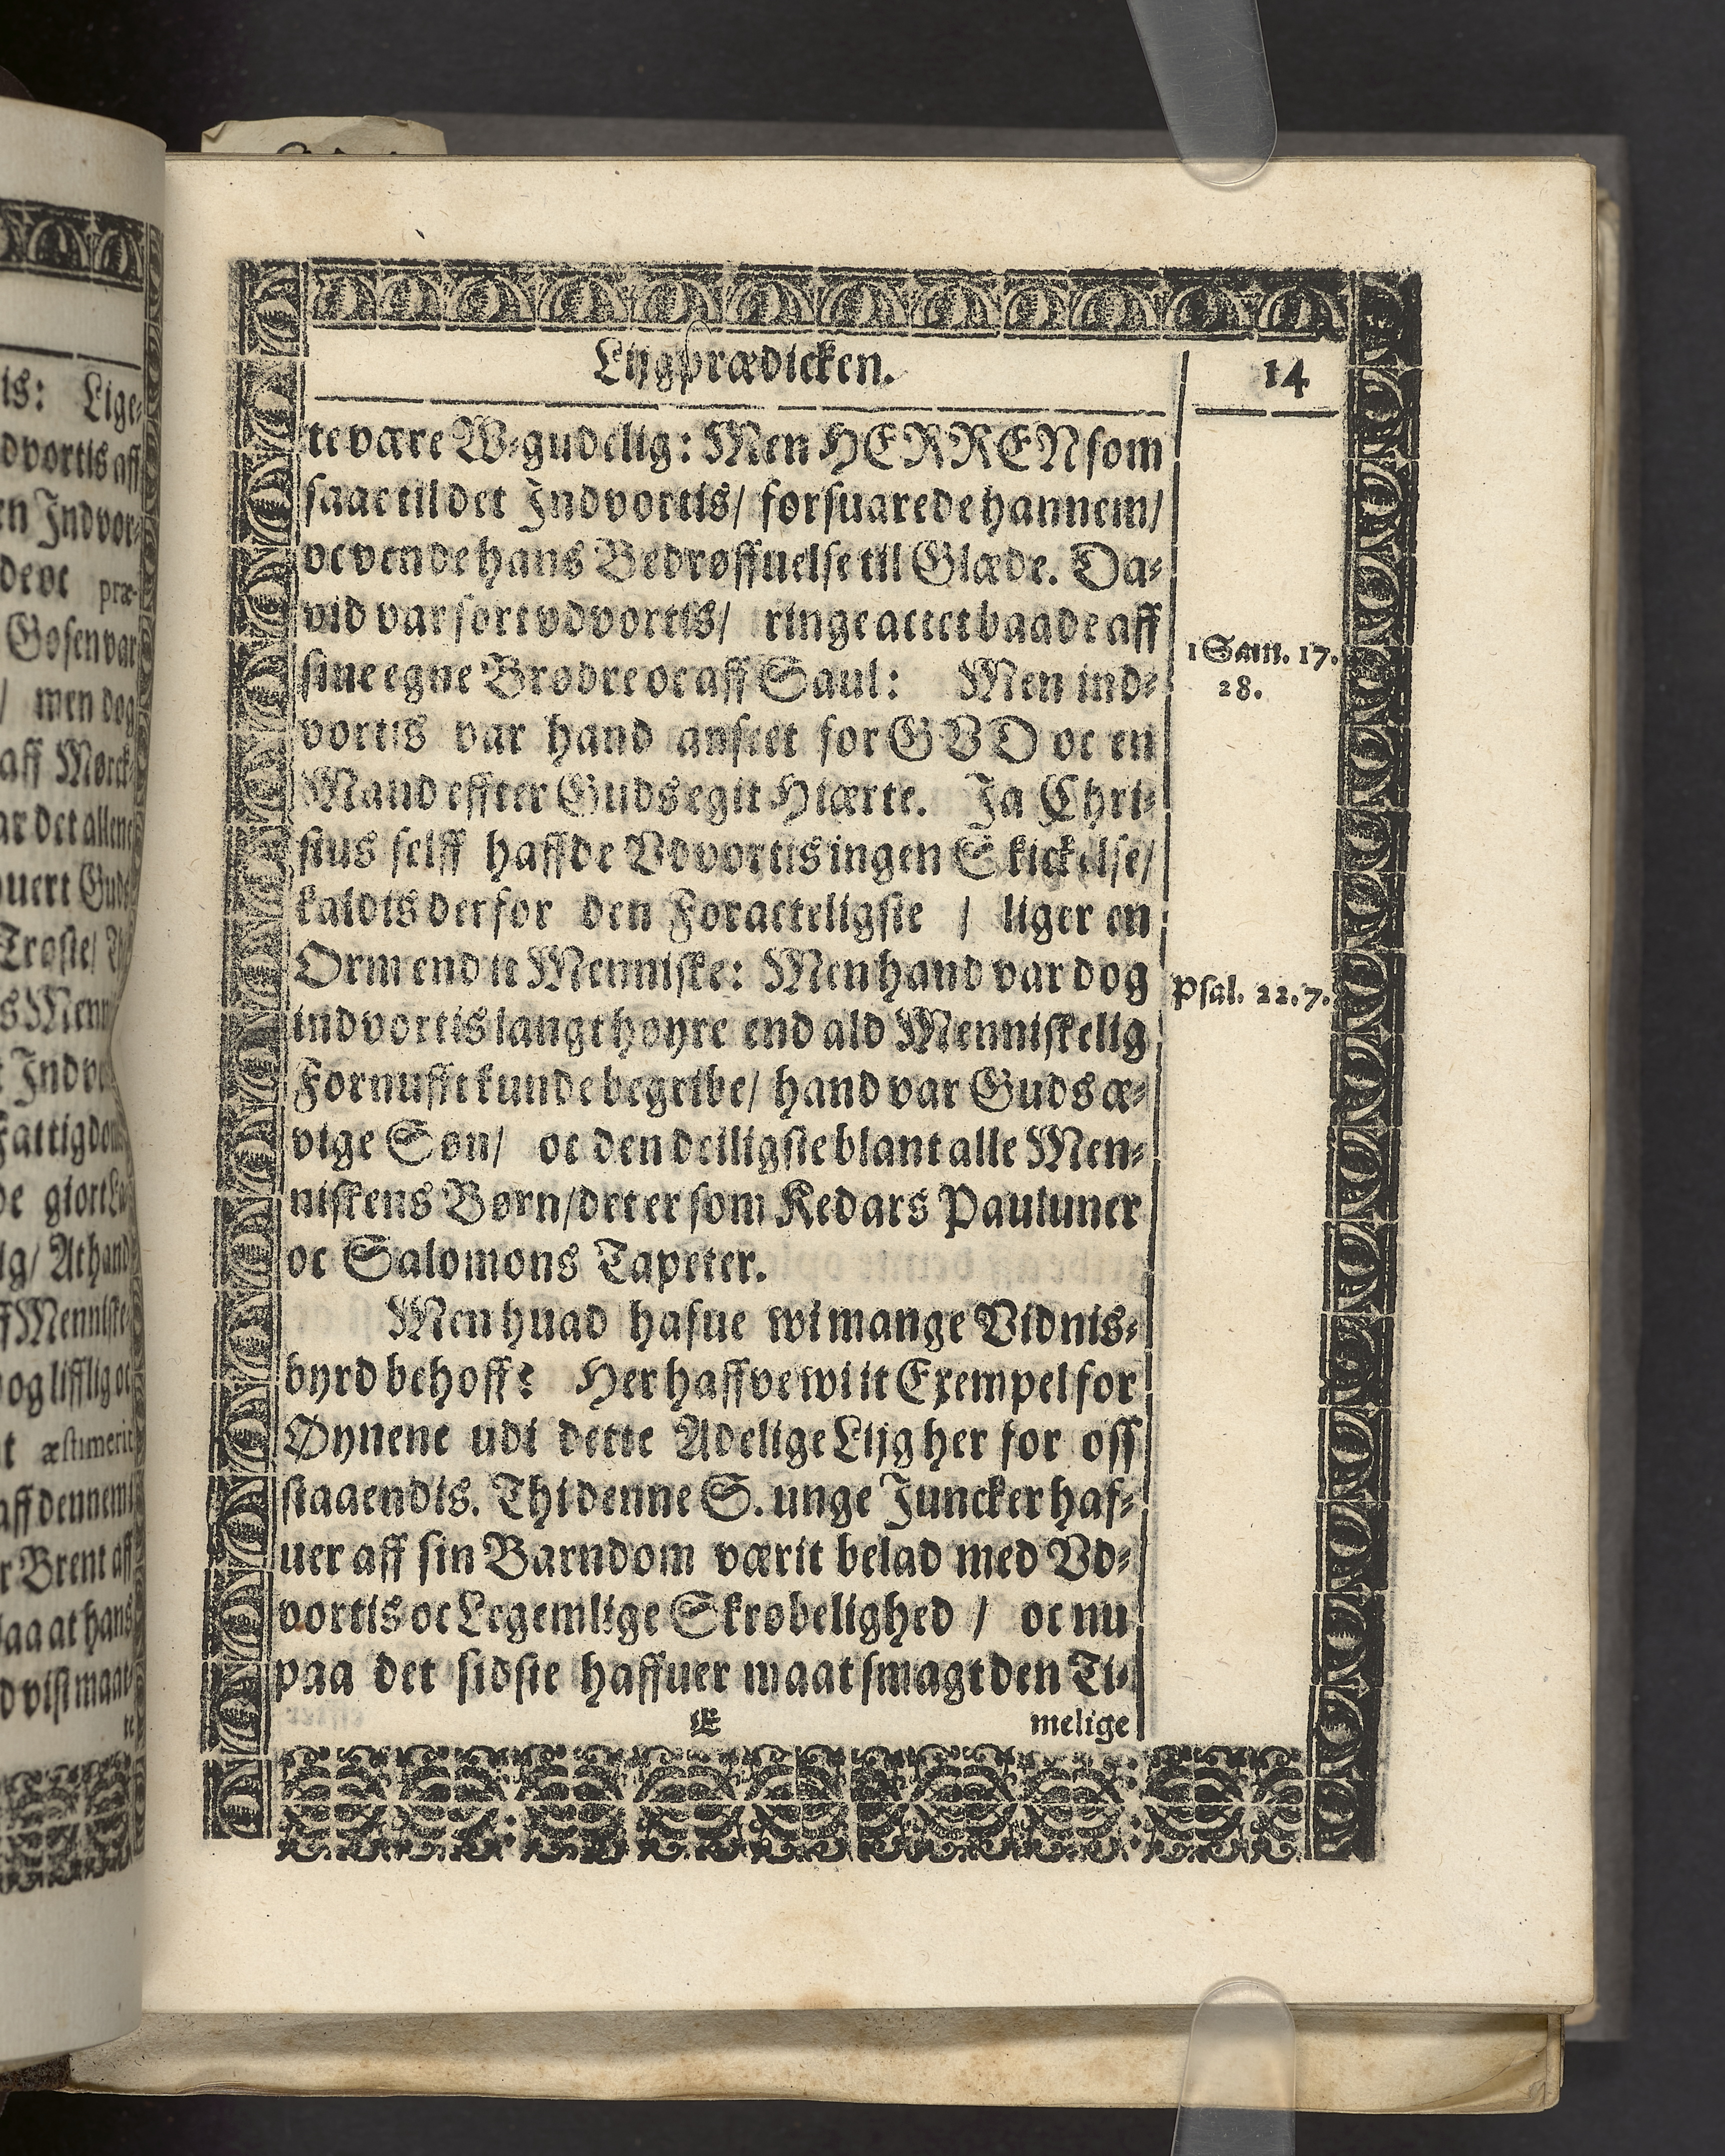 is: Lige-
dvortis aff
en Indvor-
de oc præ-
Gosen var
/ men dog
aff Mørck-
ar det allene
uert Guds
Trøste/
s Men
t Indv
Fattigdom
de giort
lig/ At hand
ff Menniske
og lifflig oc
t æstimerit
aff dennem
r Brent aff
laa at hans
d vist maat-
te
Lijgprædicken.
14
te være W-gudelig: Men HERREN som
saae til det Indvortis/ forsuarede hannem/
oc vende hans Bedrøffuelse til Glæde. Da-
vid var sort vdvortis/ ringe actet baade aff
sine egne Brødre oc aff Saul: Men ind-
vortis var hand anseet for GVD oc en
Mand effter Guds egit Hiærte. Ja Chri-
stus selff haffde Vdvortis ingen Skickelse/
kaldis derfor den Foracteligste / liger en
Orm end it Menniske: Men hand var dog
indvortis langt høyre end ald Menniskelig
Fornufft kunde begribe/ hand var Guds æ-
vige Søn/ oc den deiligste blant alle Men-
niskens Børn/ det er som Kedars Pauluner
oc Salomons Tapeter.
Men huad hafue wi mange Vidnis-
byrd behoff? Her haffve wi it Exempel for
Øynene udi dette Adelige Lijg her for oss
staaendis. Thi denne S. unge Juncker haf-
uer aff sin Barndom værit belad med Vd-
vortis oc Legemlige Skrøbelighed / oc nu
paa det sidste haffuer maat smagt den Ti-
E
melige
1 Sam. 17.
28.
Psal. 22. 7.